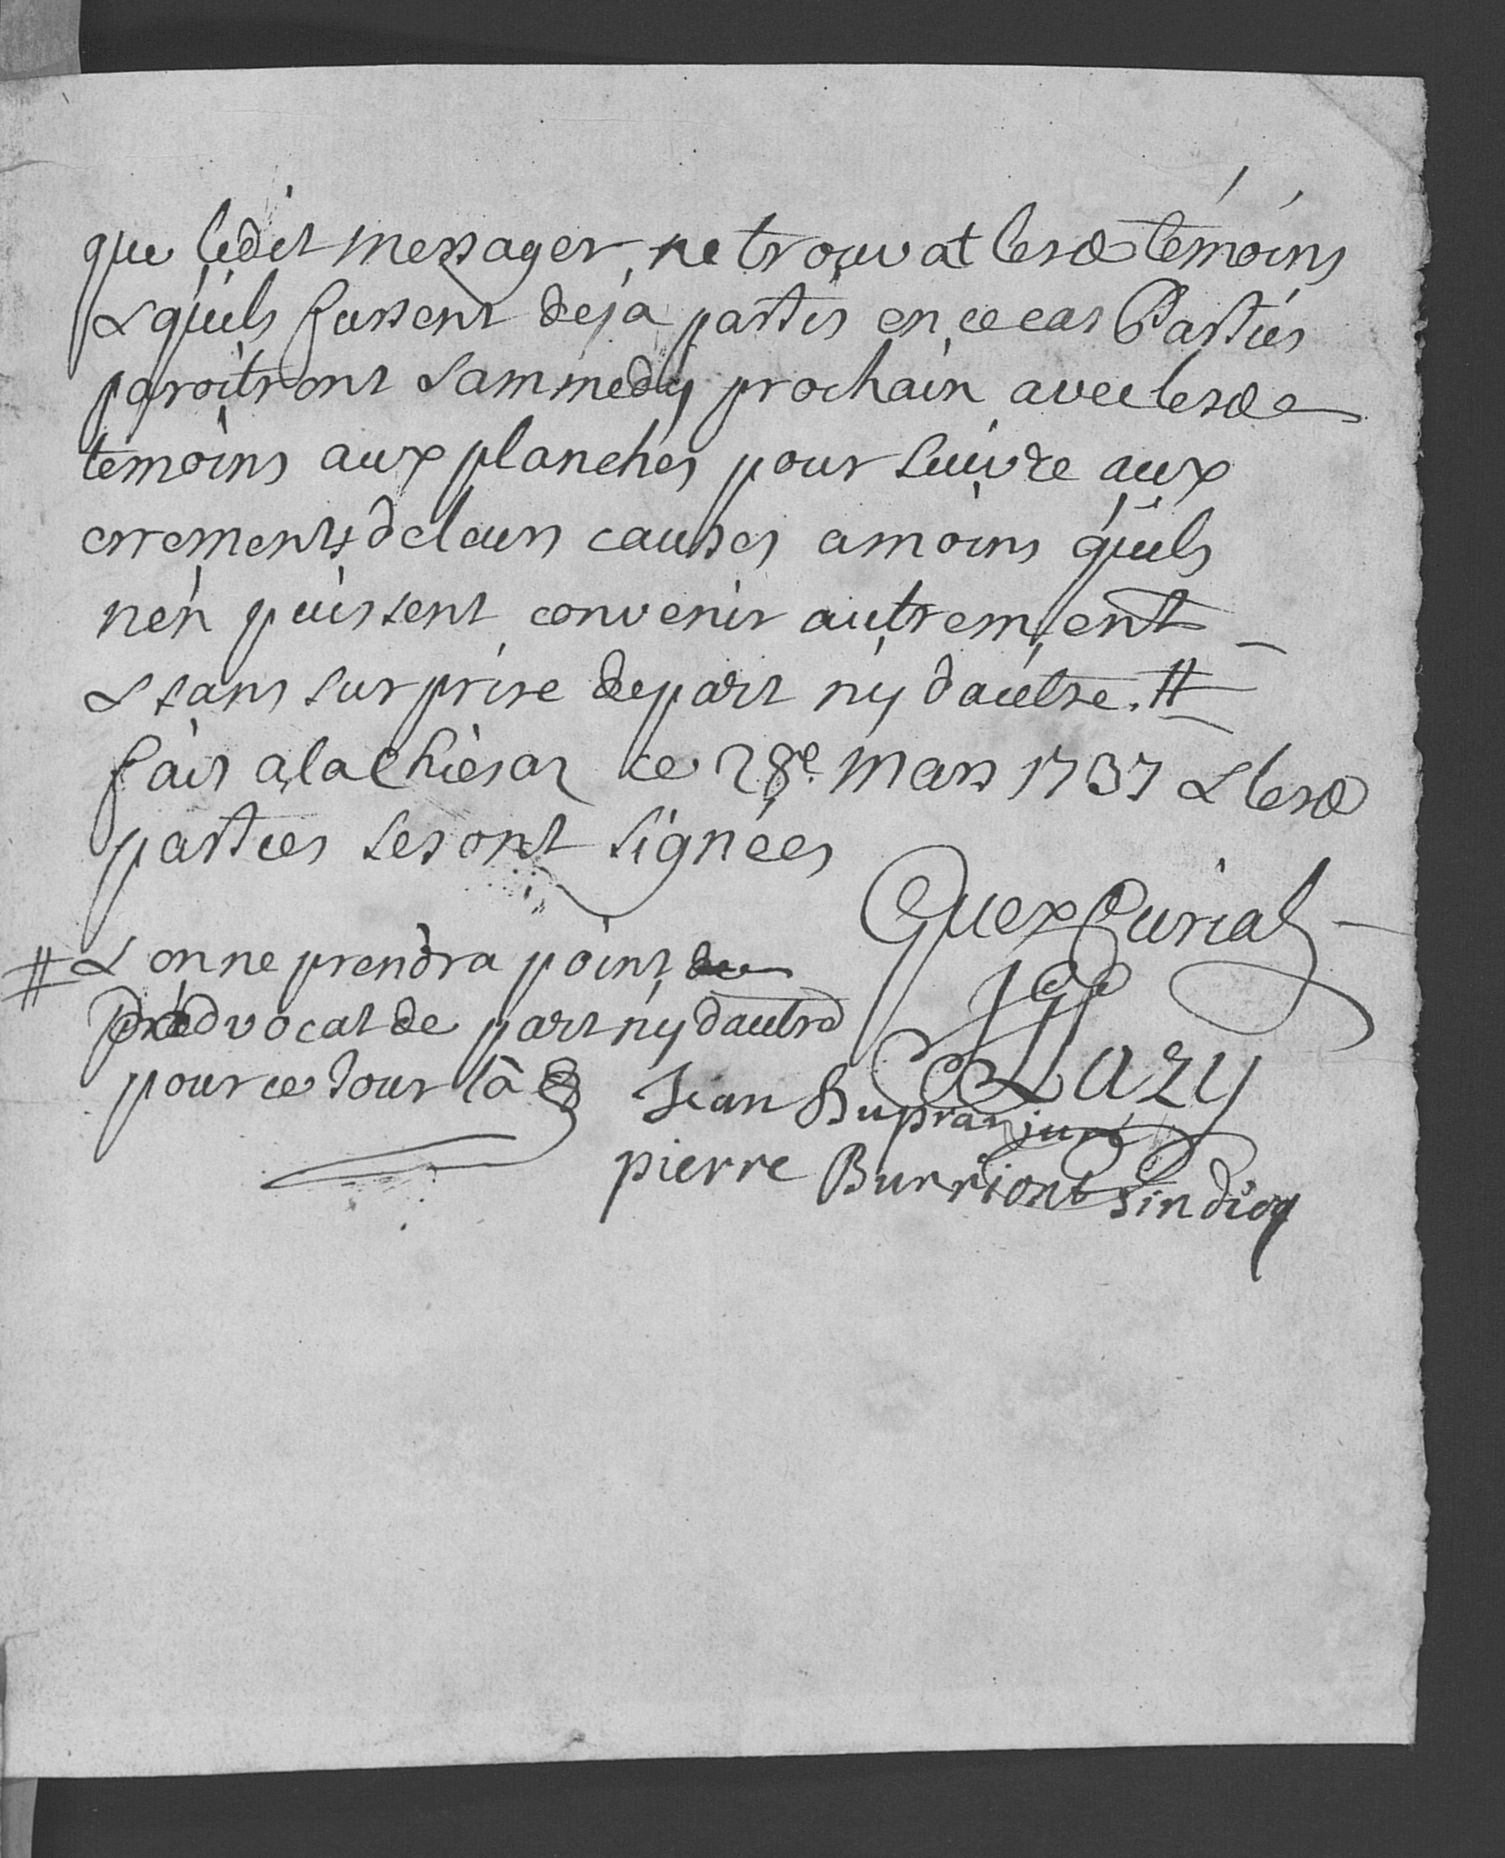 que ledit messager ne trouvat lesd temoins
& quils fussent deja partis en ce cas Parties
paroitront sammedy prochain avec lesd
temoins aux planches pour suivre aux
errements de leurs causes a moins quils
nen puissent convenir autrement
& sans surprise de part ny dautre. #
fait a la Chiesaz ce 28e. Mars 1737 & lesd
parties se sont signées
Guex Curial
# & on ne prendra point
dadvocat de part ny dautre
pour ce Jour là
Jean Dupraz juré
pierre Burriont sindicq